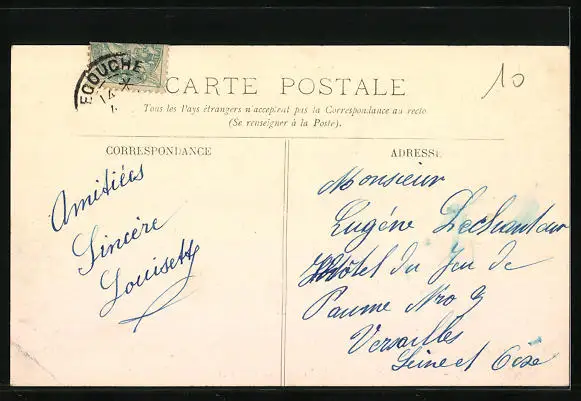 ECOUCHÉ
14 X
10
CARTE POSTALE
Tous les Pays étrangers n'acceptent pas la Correspondance au recto
(Se renseigner à la Poste).
CORRESPONDANCE
Amitiées
Sincère
Louisette
ADRESSE
Monsieur
Eugène
Hôtel du Jeu de
Paume Nro 3
Versailles
Seine et Oise